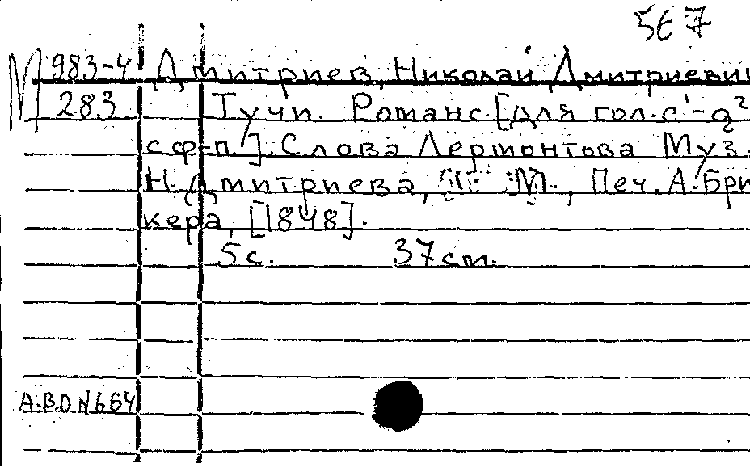 567
М 983-4 Дмитриев, Николай Дмитриевич
283 Тучи. Романс [для гол. с¹-g²
с ф-п]. Слова Лермонтова Муз.
Н. Дмитриева, М., Печ. А. Бри
кера, [1848].
5 с. 37 см.
A.BD.N664